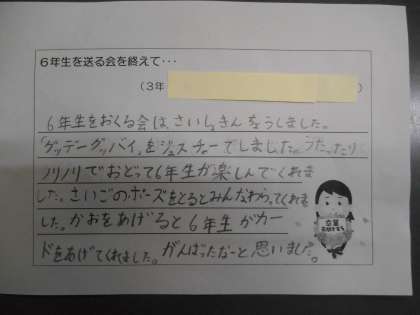 6年生を送る会を終えて・・・
(3年
)
6年生をおくる会は、さいしょきんちょうしました。
「グッデーグッバイ」をジェスチャーでしました。うたったり
ノリノリでおどって6年生が楽しんでくれま
した。さいごのポーズをとるとみんなわらってくれま
した。かおをあげると6年生がカー
ドをあげてくれました。がんばったなーと思いました。
卒業